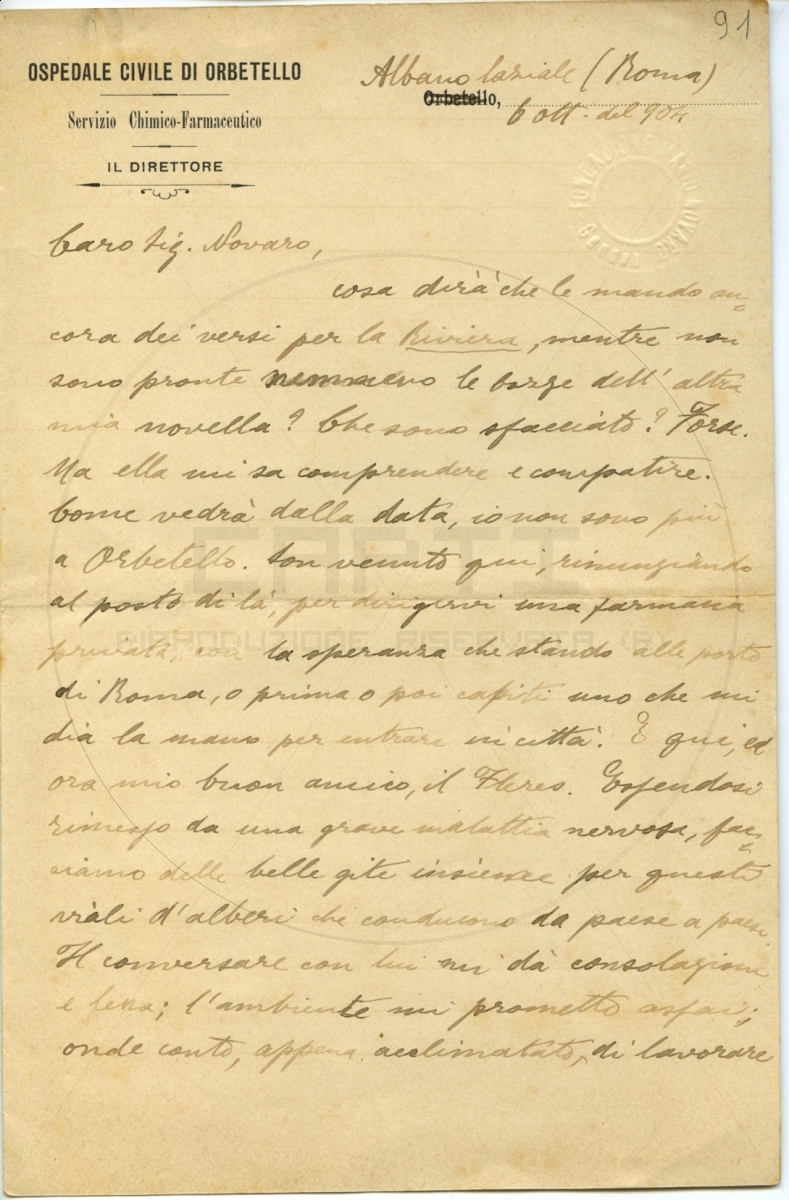 91
OSPEDALE CIVILE DI ORBETELLO
Servizio Chimico-Farmaceutico
IL DIRETTORE
Albano laziale (Roma)
Orbetello,
6 ott. del 904
FONDAZIONE MARIO NOVARO
GENOVA
Caro Sig. Novaro,
cosa dirà che le mando an=
cora dei versi per la Riviera, mentre non
sono pronte nemmeno le bozze dell'altra
mia novella? Che sono sfacciato? Forse.
Ma ella mi sa comprendere e compatire.
Come vedrà dalla data, io non sono più
a Orbetello. Son venuto qui, rinunziando
al posto di là, per dirigervi una farmacia
privata, con la speranza che stando alle porte
di Roma, o prima o poi capiti uno che mi
dia la mano per entrare in città. È qui, ed
ora mio buon amico, il Fleres. Essendosi
rimesso da una grave malattia nervosa, fac=
ciamo delle belle gite insieme per questi
viali d'alberi che conducono da paese a paese.
Il conversare con lui mi dà consolazione
e lena; l'ambiente mi promette assai;
onde conto, appena acclimatato, di lavorare
CARTI
RIPRODUZIONE RISERVATA (R)